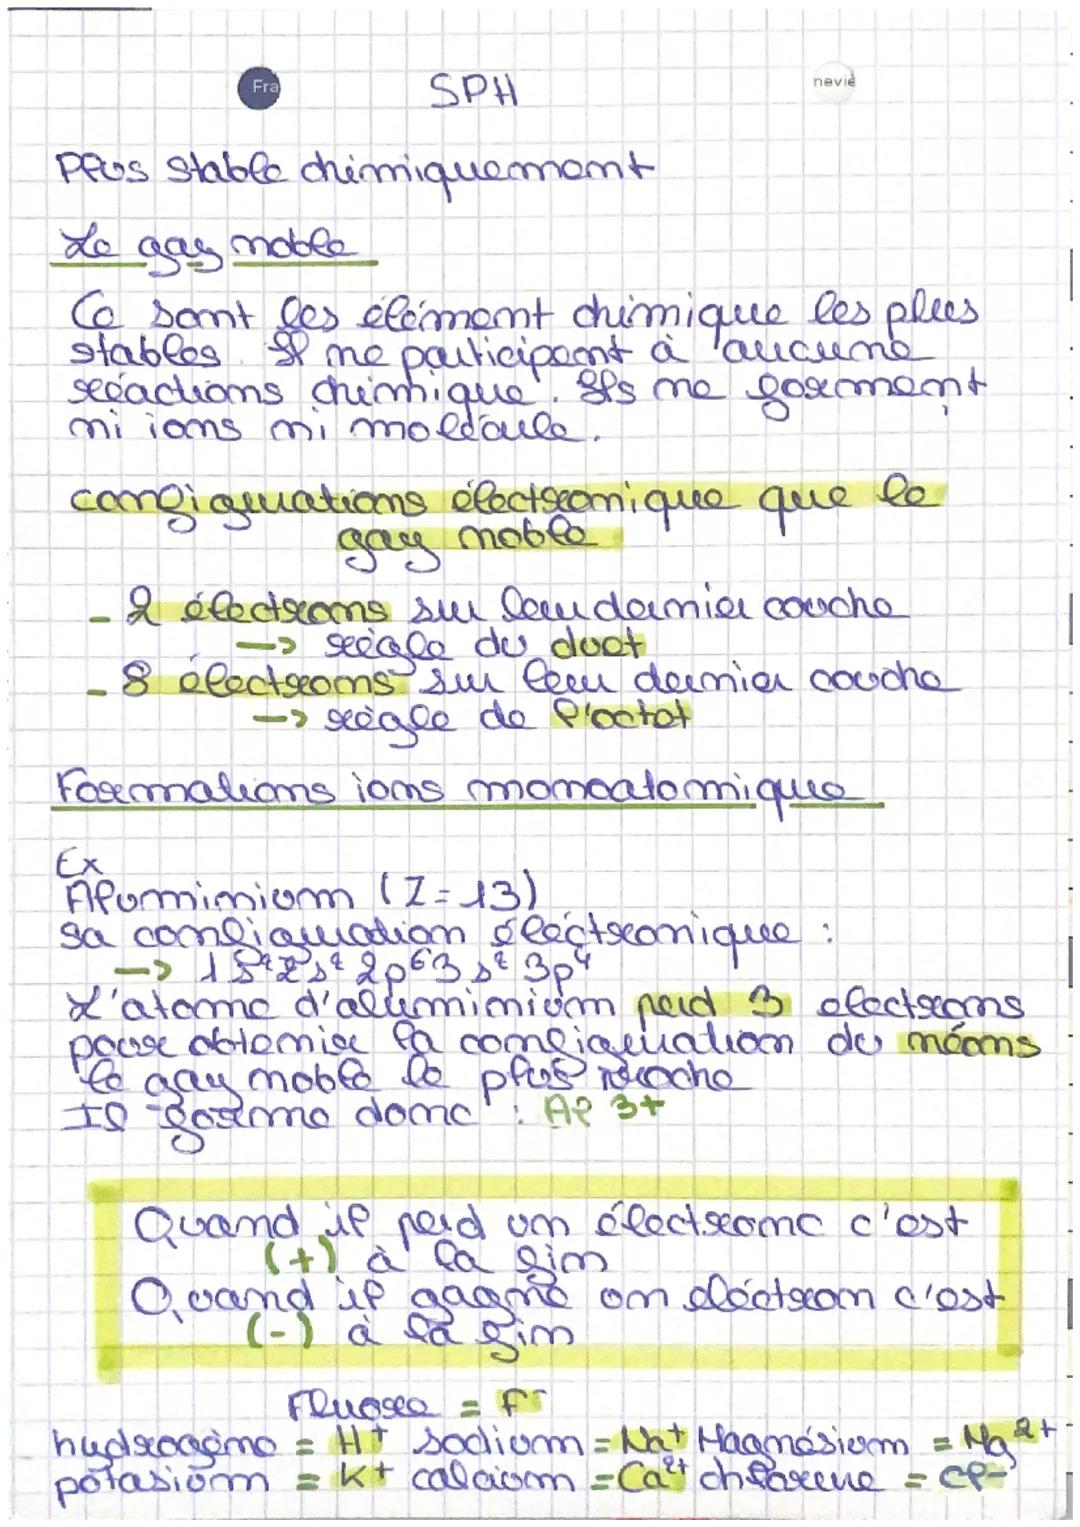 Fra
SPH
neviè
Plus stable chimiquement
Le gaz noble
Ce sont les élément chimique les plus
stables. Il ne participent à aucune
réactions chimique. Ils ne forment
ni ions ni molécule.
configurations électronique que le
gaz noble
- 2 électrons sur leur dernier couche
→ règle du duet
- 8 électrons sur leur dernier couche
→ règle de l'octet
Formations ions monoatomique
Ex
Aluminium (Z=13)
sa configuration électronique :
→ 1s² 2s² 2p⁶ 3s² 3p⁴
L'atome d'aluminium perd 3 electrons
pour obtenir la configuration du néons
le gaz noble le plus proche
Il forme donc : Al 3+
Quand il perd un électrone c'est
(+) à la fin
Quand il gagne un electron c'est
(-) à la fin
Fluore = F⁻
hydrogène = H⁺ sodium = Na⁺ Magnésium = Mg²⁺
potasium = K⁺ calcium = Ca²⁺ chlorure = Cl⁻